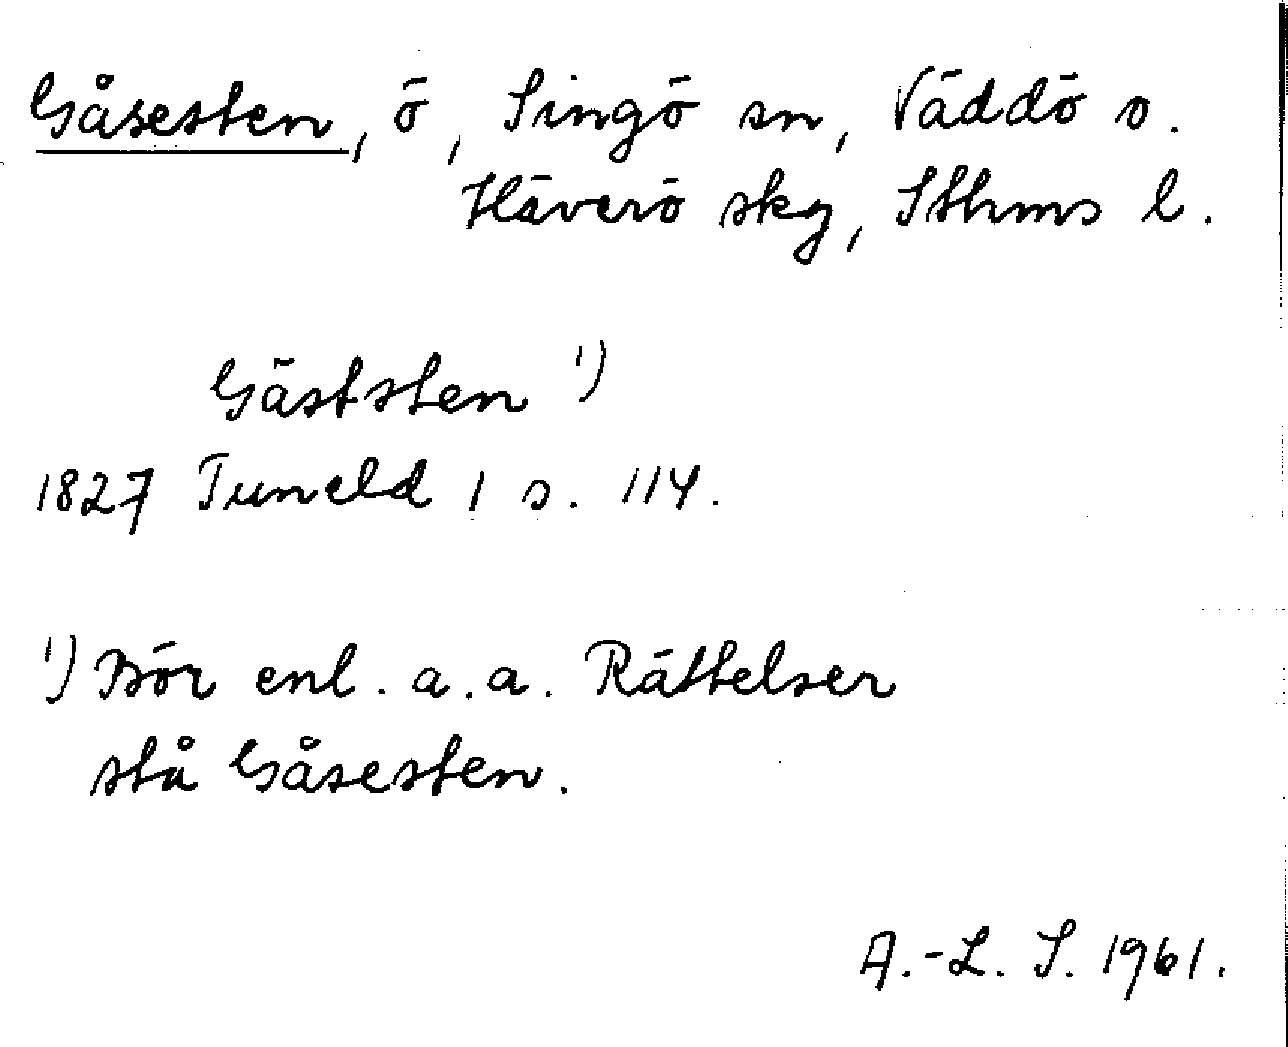 Gåsesten, ö, Singö sn, Väddö o.
Häverö skg, Sthms l.
Gäststen ¹)
1827 Tuneld 1 s. 114.
¹) Bör enl. a.a. Rättelser
stå Gåsesten.
A.-L. S. 1961.